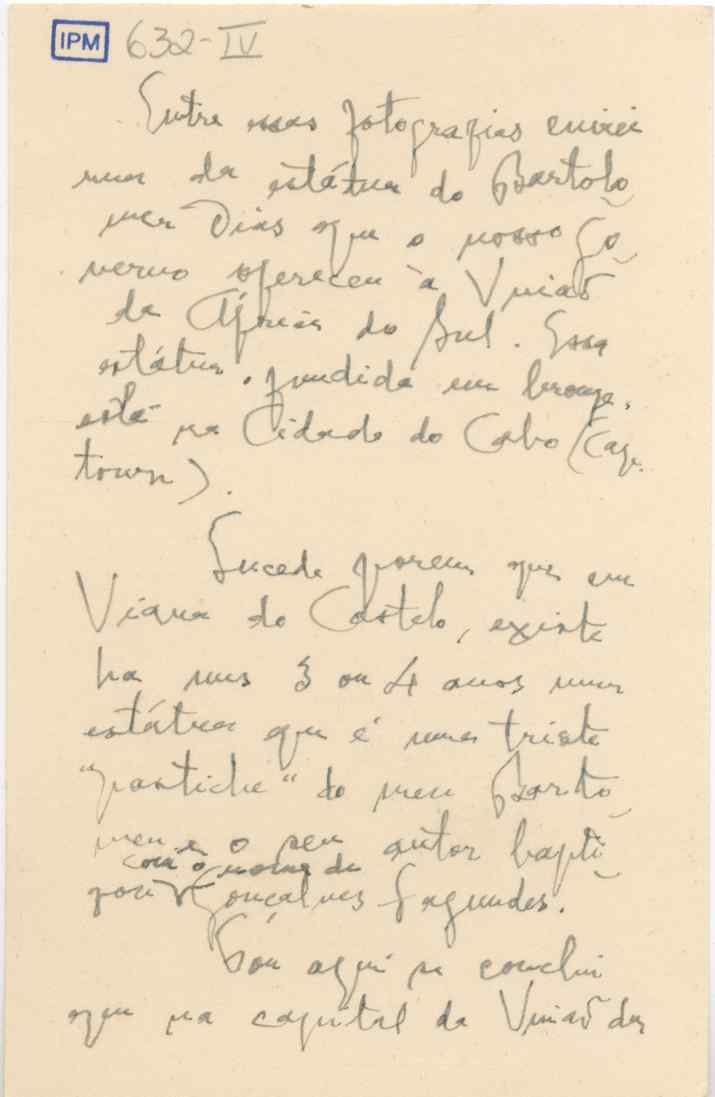 IPM 632-IV
Entre essas fotografias enviei
uma da estátua do Bartolo
meu Dias que o nosso Go
verno ofereceu à União
da África do Sul. Essa
estátua, fundida em bronze,
está na Cidade do Cabo (Cape
town).
Sucede porem que em
Viana do Castelo, existe
ha uns 3 ou 4 anos uma
estátua que é uma triste
"pastiche" do meu Barto
meu e o seu autor bapti
com o nome de
zou Gonçalves Fagundes.
Por aqui se conclui
que na capital da União da